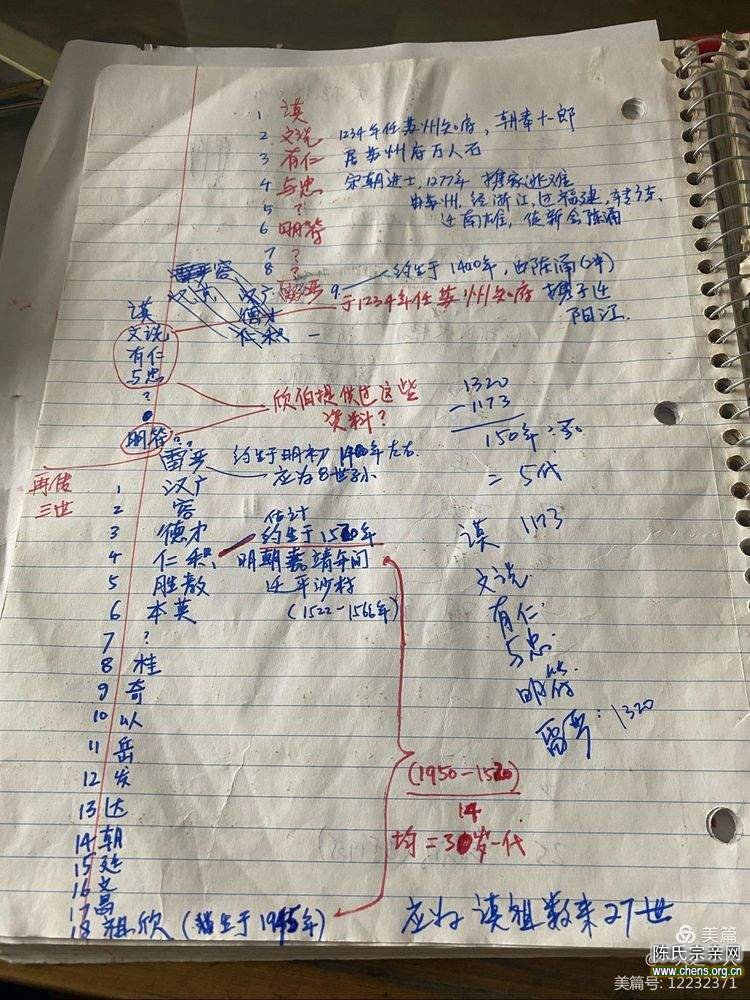 1 谟
2 文说 1234年任苏州知府，朝奉十一郎
3 有仁 居苏州府万人石
4 与忠 宋朝进士，1277年携家逃难
由苏州，经浙江，过福建，转广东，
5 ?
迁南雄，住新会陈涌
6 明答
7 ?
8 ?
9. 约生于1400年，由陈涌
于1234年任苏州知府 携子迁
阳江.
德才
仁积
谟
文说
有仁
与忠
?
明答 ??
欣伯提供过这些
资料?
1320
-1173
150年
=5代
雷 约生于明初1400年左右
应为8世孙
再传
三世
1 汉广
2 容
3 德才 估计
约生于1520年
4 仁积 明朝嘉靖年间
5 胜教 迁平沙村
6 本英 (1522-1566年)
7 ?
8 桂
9 奇
10 以
11 岳
12 发
13 达
14 朝
15 廷
16 文
17 昌
18 祖欣 (生于1945年)
谟 1173
文说
有仁
与忠
明答
雷 : 1320
(1950-1520)
14
均=30岁一代
应为谟祖数来27世
美篇
陈氏宗亲网
www.chens.org.cn
美篇号: 12232371